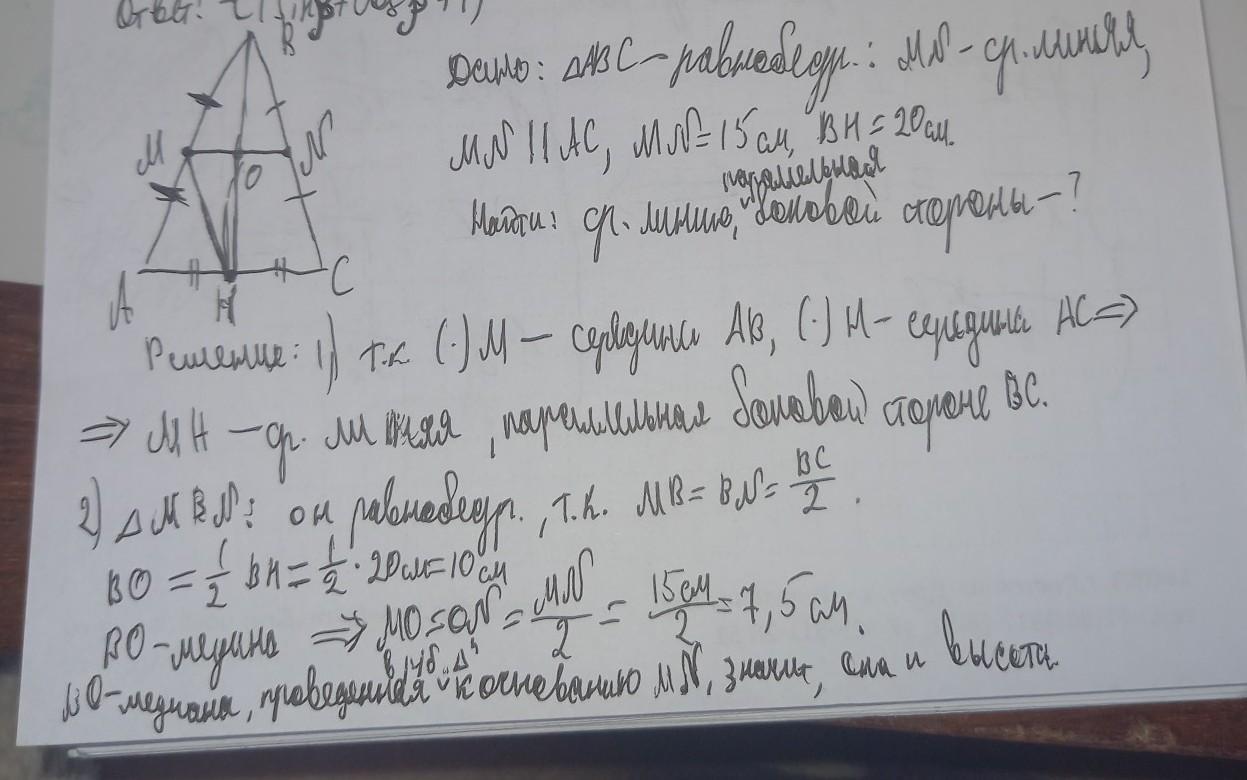 Ответ:
B
Дано: △ABC – равнобедр.: MN – ср. линия,
M N
O
MN || AC, MN = 15 см, BH = 20 см.
параллельная
Найти: ср. линию, боковой стороны – ?
A H C
Решение: 1) т.к (·) M – середина AB, (·) H – середина AC ⇒
⇒ MH – ср. линия, параллельная боковой стороне BC.
2) △MBN: он равнобедр., т.к. MB = BN = BC/2.
BO = 1/2 BH = 1/2 · 20 см = 10 см
BO – медина ⇒ MO = ON = MN/2 = 15 см/2 = 7,5 см.
в р/б. △
BO – медиана, проведенная к основанию MN, значит, она и высота.